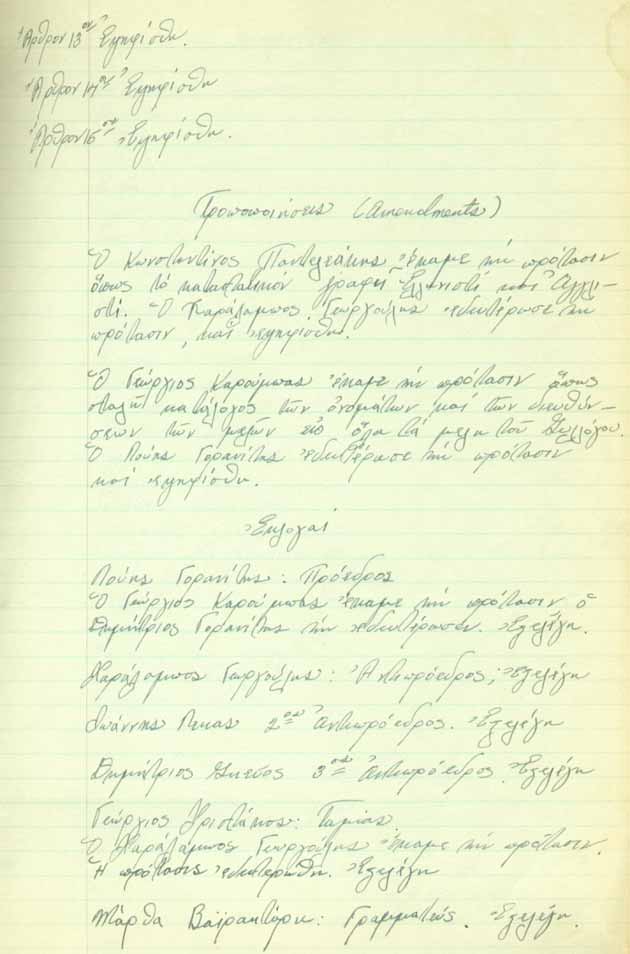 Ἄρθρον 13ον Ἐψηφίσθη.
Ἄρθρον 14ον Ἐψηφίσθη
Ἄρθρον 15ον Ἐψηφίσθη.
Τροποποιήσεις (Amendments)
Ὁ Κωνσταντῖνος Παντελεάκης ἔκαμε τήν πρότασιν
ὅπως τό καταστατικόν γραφῆ Ἑλληνιστί καί Ἀγγλι-
στί. Ὁ Χαράλαμπος Γεωργούλης ἐδευτέρωσε τήν
πρότασιν, καί ἐψηφίσθη.
Ὁ Γεώργιος Καρούμπας ἔκαμε τήν πρότασιν ὅπως
σταλῆ κατάλογος τῶν ὀνομάτων καί τῶν διευθύν-
σεων τῶν μελῶν εἰς ὅλα τά μέλη τοῦ Συλλόγου.
Ὁ Λούης Γορανίτης ἐδευτέρωσε τήν πρότασιν
καί ἐψηφίσθη.
Ἐκλογαί
Λούης Γορανίτης: Πρόεδρος
Ὁ Γεώργιος Καρούμπας ἔκαμε τήν πρότασιν ὁ
Δημήτριος Γορανίτης τήν ἐδευτέρωσεν. Ἐξελέγη.
Χαράλαμπος Γεωργούλης: Ἀντιπρόεδρος; Ἐξελέγη
Ἰωάννης Λεκας 2ος Ἀντιπρόεδρος. Ἐξελέγη
Δημήτριος 3ος Ἀντιπρόεδρος. Ἐξελέγη
Γεώργιος Χριστάκος: Ταμίας.
Ὁ Χαράλαμπος Γεωργούλης ἔκαμε τήν πρότασιν.
Ἡ πρότασις ἐδευτερώθη. Ἐξελέγη
Μάρθα Βαϊρακτάρη: Γραμματεύς. Ἐξελέγη.